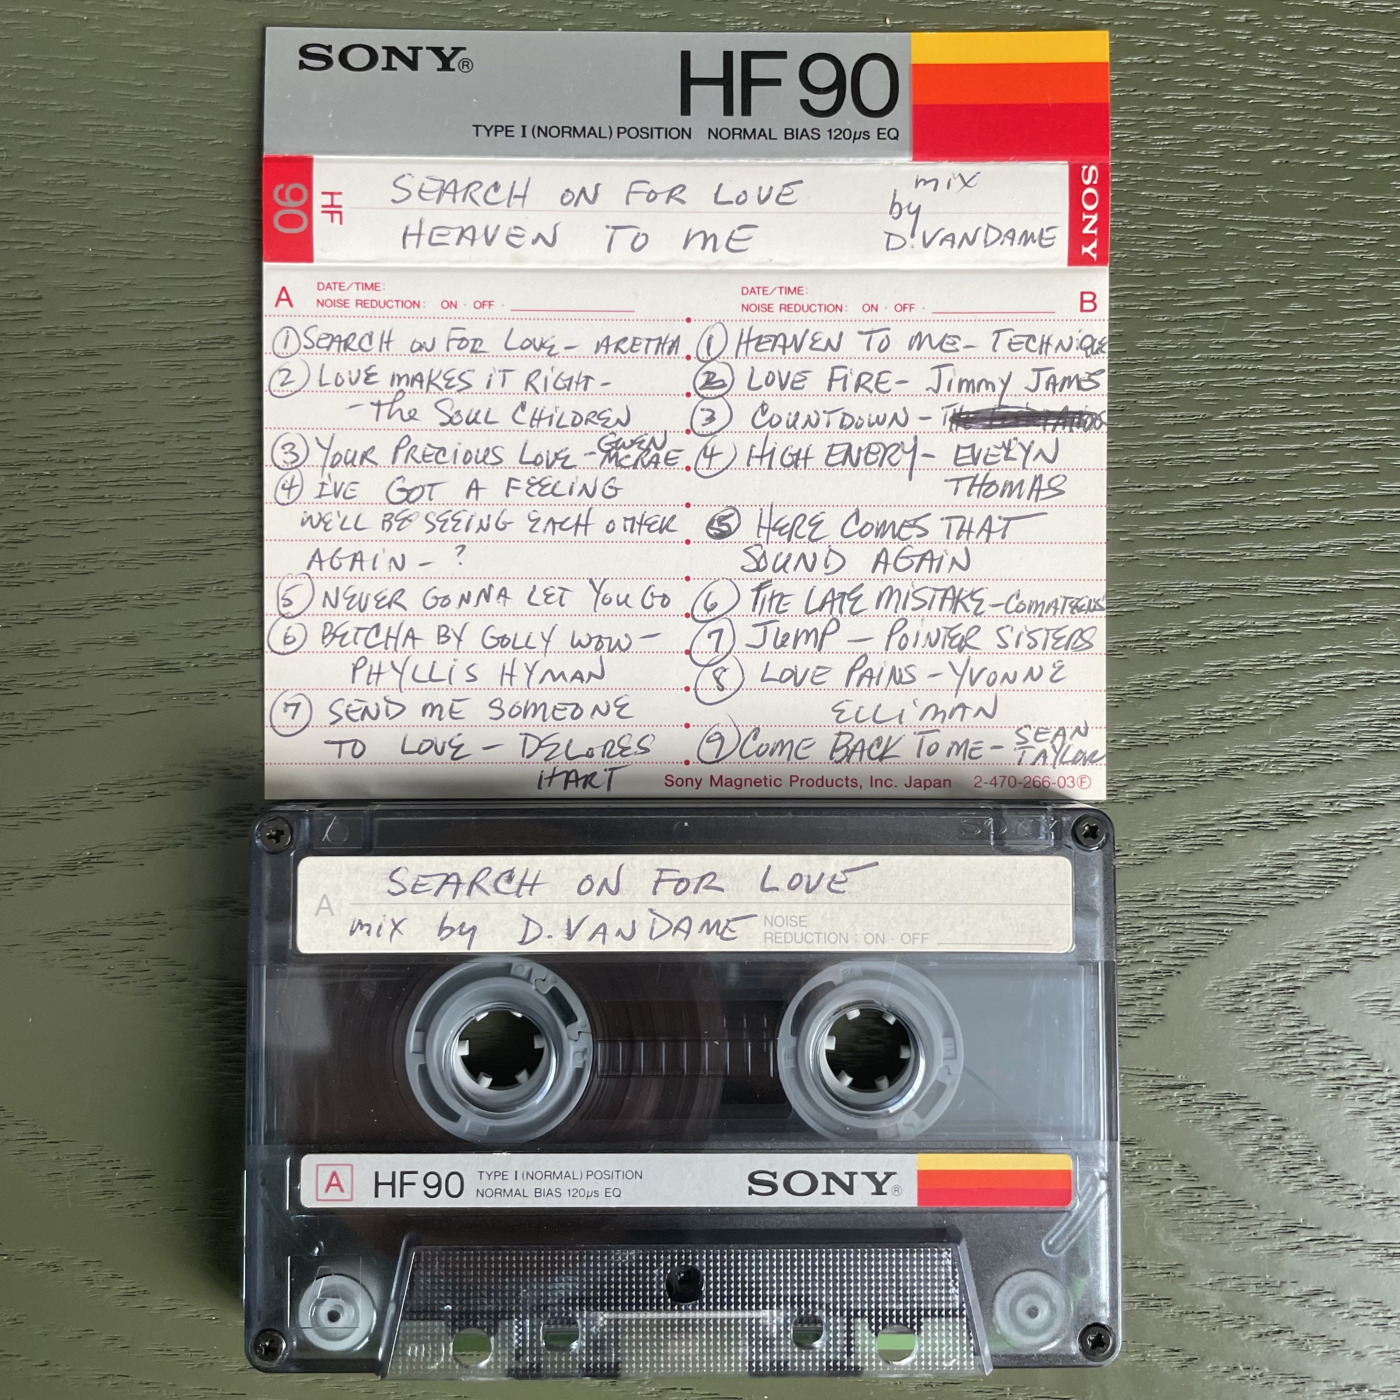 SONY®
HF 90
TYPE I (NORMAL) POSITION NORMAL BIAS 120μs EQ
90
HF
SEARCH ON FOR LOVE
HEAVEN TO ME
mix
by
D. VANDAME
SONY
A
DATE/TIME:
NOISE REDUCTION: ON · OFF ·
① SEARCH ON FOR LOVE - ARETHA
② LOVE MAKES IT RIGHT -
- The SOUL CHILDREN
③ YOUR PRECIOUS LOVE - GWEN
MCRAE
④ I'VE GOT A FEELING
WE'LL BE SEEING EACH OTHER
AGAIN - ?
⑤ NEVER GONNA LET YOU GO
⑥ BETCHA BY GOLLY WOW -
PHYLLIS HYMAN
⑦ SEND ME SOMEONE
TO LOVE - DELORES
HART
DATE/TIME:
NOISE REDUCTION: ON · OFF ·
B
① HEAVEN TO ME - TECHNIQUE
② LOVE FIRE - Jimmy JAMES
③ COUNTDOWN -
④ HIGH ENERY - EVELYN
THOMAS
⑤ HERE COMES THAT
SOUND AGAIN
⑥ THE LATE MISTAKE - COMATEENS
⑦ JUMP - POINTER SISTERS
⑧ LOVE PAINS - YVONNE
ELLIMAN
⑨ COME BACK TO ME - SEAN
TAYLOR
Sony Magnetic Products, Inc. Japan 2-470-266-03Ⓕ
A
SEARCH ON FOR LOVE
mix by D. VANDAME
NOISE
REDUCTION: ON · OFF
A
HF 90
TYPE I (NORMAL) POSITION
NORMAL BIAS 120μs EQ
SONY®